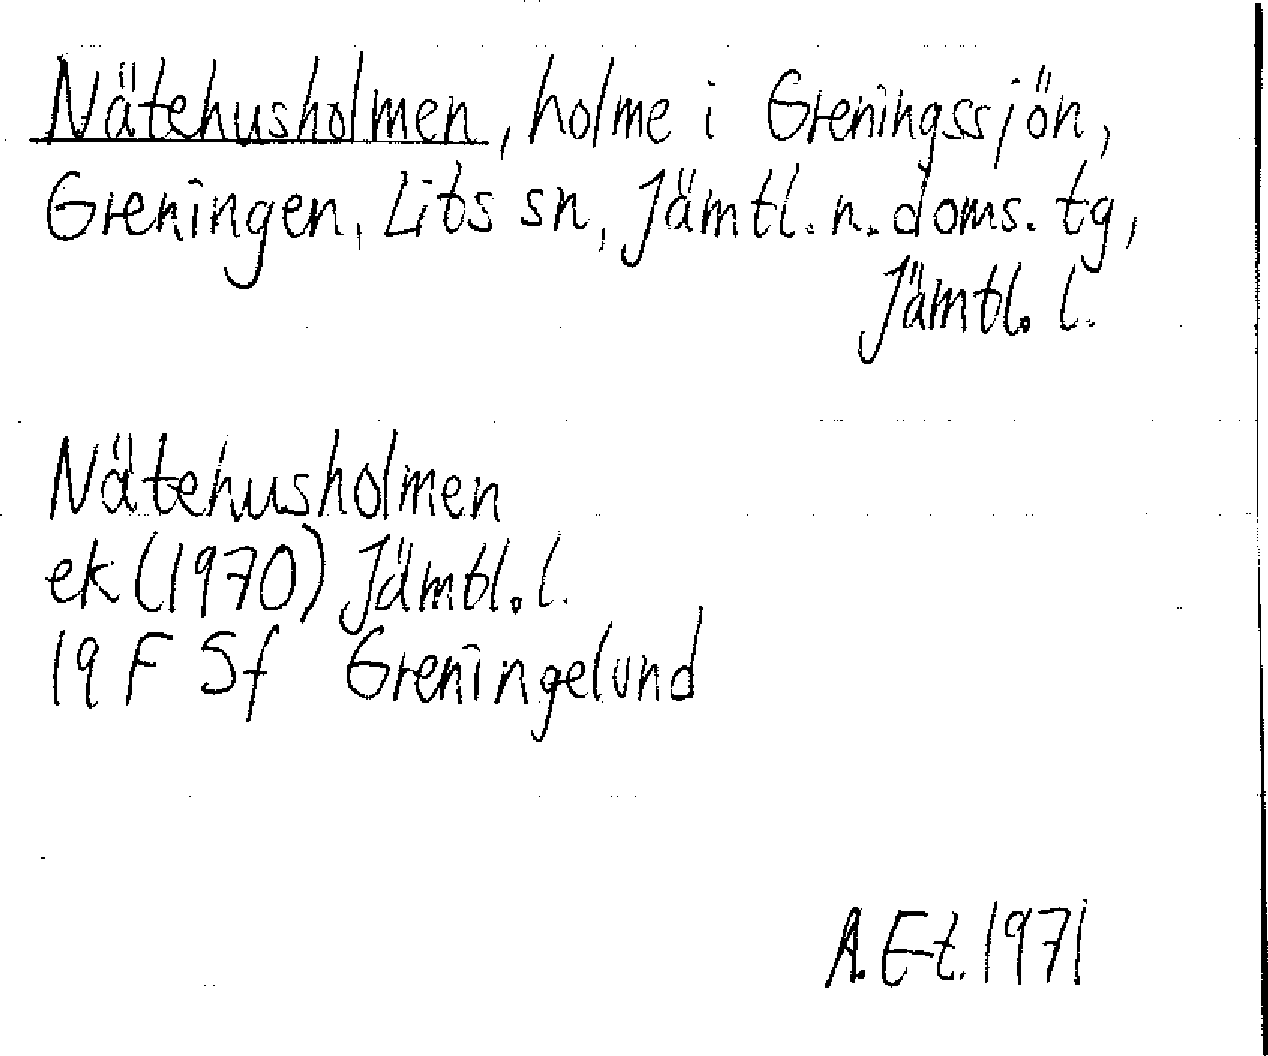 Nätehusholmen, holme i Greningssjön,
Greningen, Lits sn, Jämtl. n. doms. tg,
Jämtl. l.
Nätehusholmen
ek (1970) Jämtl. l.
19 F Sf Greningelund
A. E-t. 1971